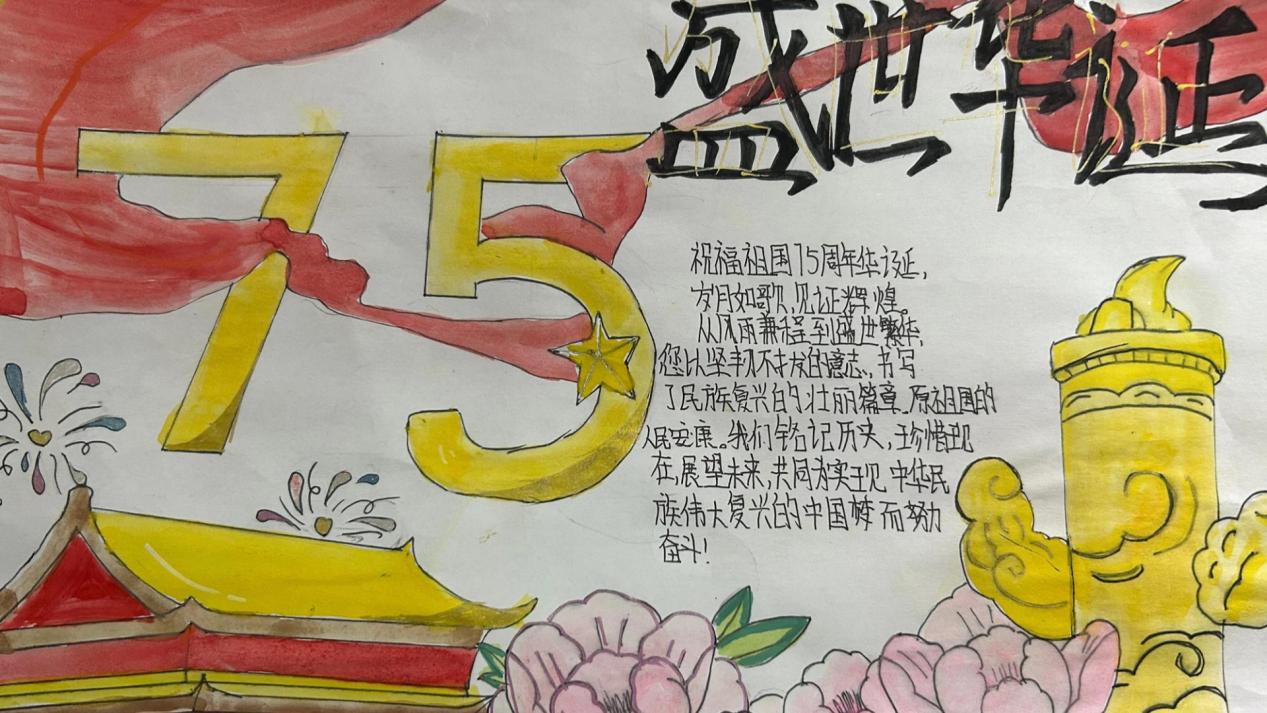 盛世华证
75
祝福祖国75周年华诞,
岁月如歌,见证辉煌。
从风雨兼程到盛世繁华,
您以坚韧不拔的意志,书写
了民族复兴的壮丽篇章.原祖国的
人民安康。我们铭记历史,珍惜现
在,展望未来,共同为实现中华民
族伟大复兴的中国梦而努力
奋斗!